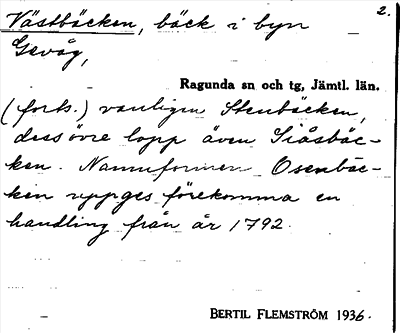 Västbäcken, bäck i byn 2.
Gevåg,
Ragunda sn och tg, Jämtl. län.
(forts.) vanligen Stenbäcken,
dess övre lopp även Siåsbäc-
ken. Namnformen Osenbäc-
ken uppges förekomma en
handling från år 1792.
BERTIL FLEMSTRÖM 1936.